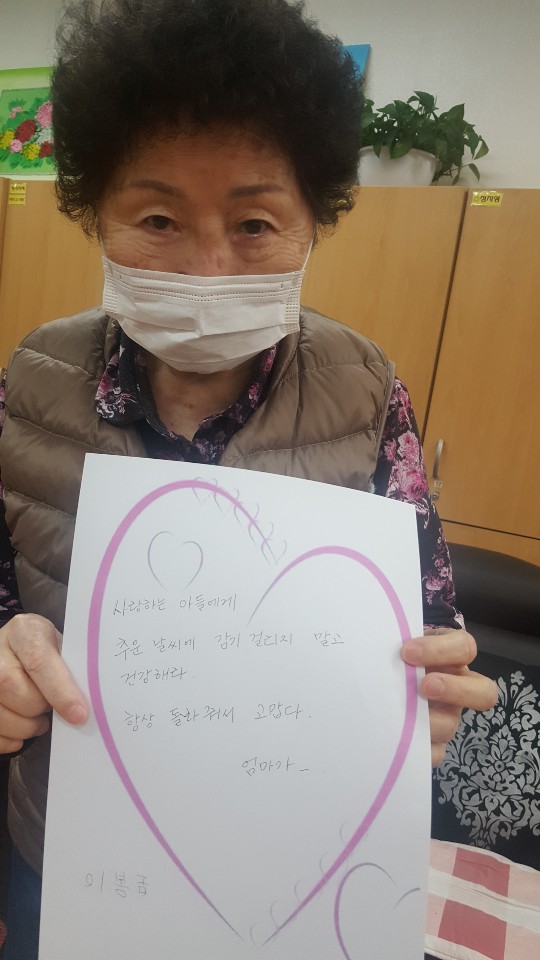 사랑하는 아들에게
추운 날씨에 감기 걸리지 말고
건강해라.
항상 돌봐줘서 고맙다.
엄마가 -
이봉금